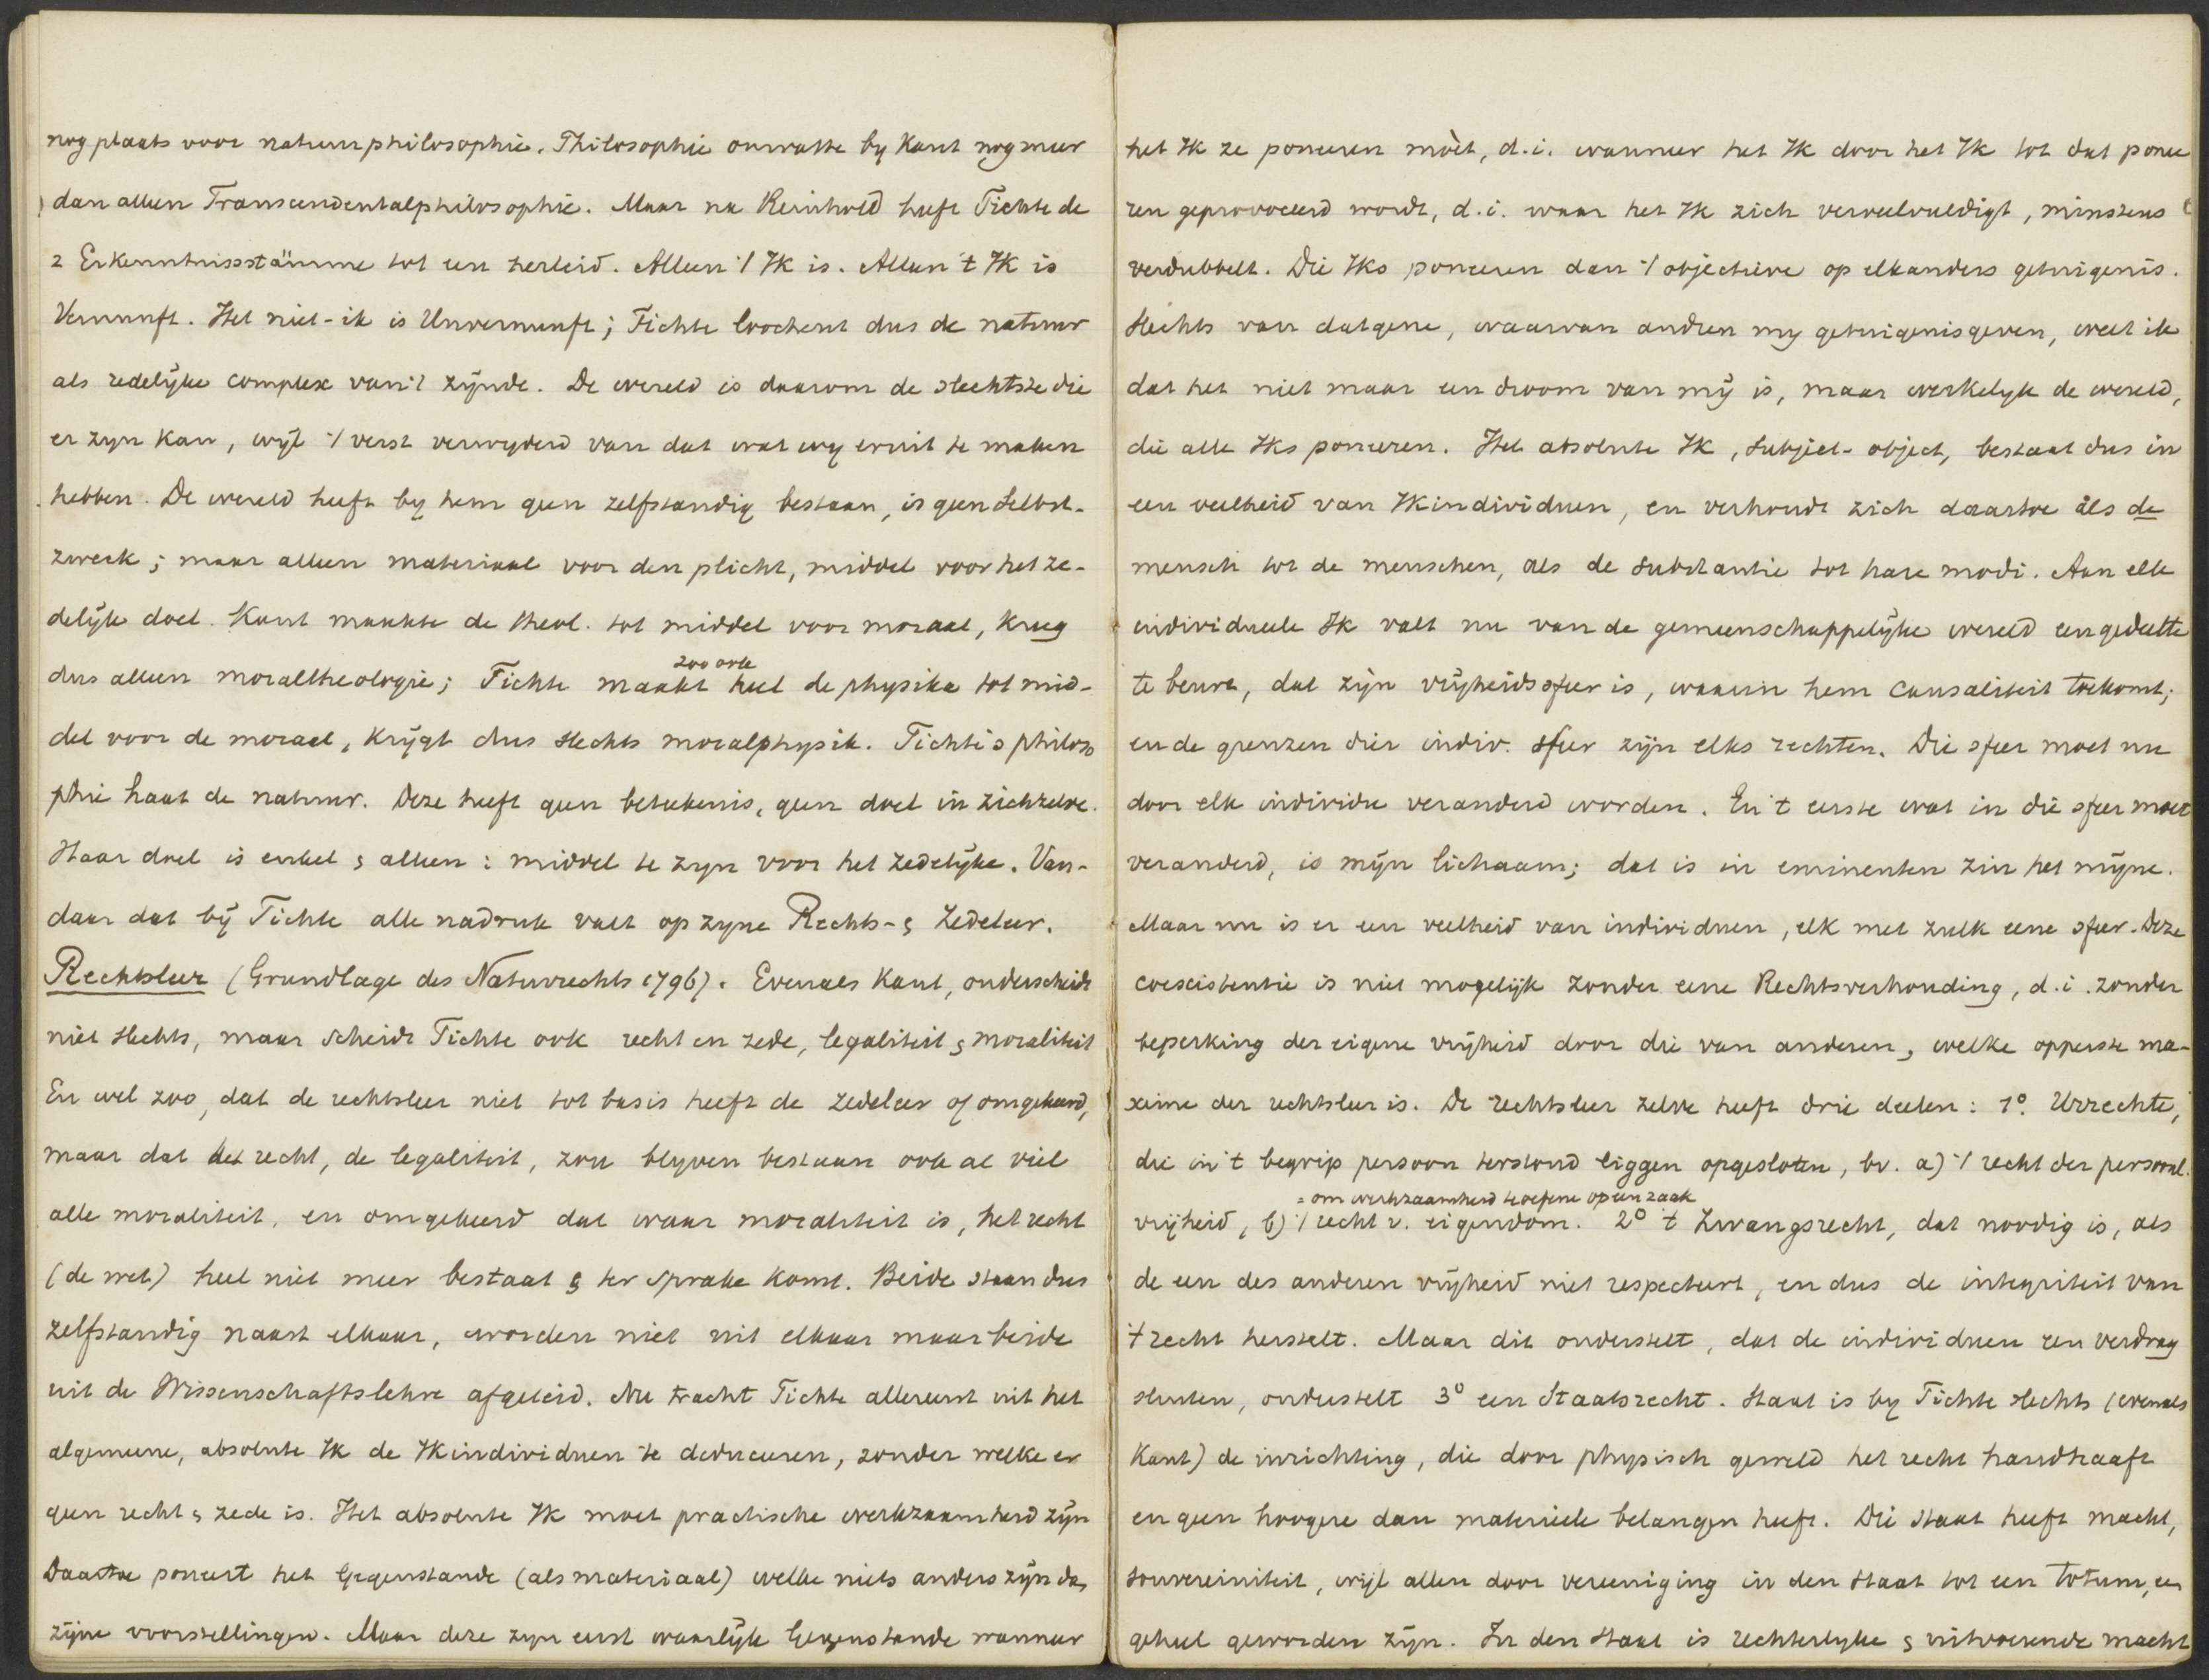 nog plaats voor natuurphilosophie. Philosophie omvatte by Kant nog meer
dan alleen Transcendentalphilosophie. Maar na Reinhold heeft Fichte de
2 Erkenntnissstämme tot een herleid. Alleen 't Ik is. Alleen 't Ik is
Vernunft. Het niet-ik is Unvernunft; Fichte loochent dus de natuur
als redelijke complex van 't zijnde. De wereld is daarom de slechtste die
er zyn kan, wijl 't verst verwyderd van dat wat wy eruit te maken
hebben. De wereld heeft by hem geen zelfstandig bestaan, is geen Selbst-
zweck; maar alleen materiaal voor den plicht, middel voor het ze-
delijk doel. Kant maakte de theol. tot middel voor moraal, kreeg
dus alleen moraltheologie; Fichte maakt zoo ook heel de physika tot mid-
del voor de moraal, krijgt dus slechts moralphysik. Fichte's philoso
phie haat de natuur. Deze heeft geen beteekenis, geen doel in zichzelve.
Haar doel is enkel & alleen: middel te zyn voor het zedelijke. Van-
daar dat bij Fichte alle nadruk valt op zyne Rechts- & Zedeleer.
Rechtsleer (Grundlage des Naturrechts 1796). Evenals Kant, onderscheidt
niet slechts, maar scheidt Fichte ook recht en zede, legaliteit & moraliteit
En wel zoo, dat de rechtsleer niet tot basis heeft de zedeleer of omgekeerd,
maar dat het recht, de legaliteit, zou blyven bestaan ook al viel
alle moraliteit, en omgekeerd dat waar moraliteit is, het recht
(de wet) heel niet meer bestaat & ter sprake komt. Beide staan dus
zelfstandig naast elkaar, worden niet uit elkaar maar beide
uit de Wissenschaftslehre afgeleid. Nu tracht Fichte allereerst uit het
algemeene, absolute Ik de Ikindividuen te deduceeren, zonder welke er
geen recht & zede is. Het absolute Ik moet practische werkzaamheid zijn
Daartoe poneert het Gegenstande (als materiaal) welke niets anders zijn dan
zijne voorstellingen. Maar deze zyn eerst waarlijk Gegenstande wanneer
het Ik ze poneeren mòet, d.i. wanneer het Ik door het Ik tot dat ponee
ren geprovoceerd wordt, d.i. waar het Ik zich verveelvuldigt, minstens
verdubbelt. Die Iks poneeren dan 't objectieve op elkanders getuigenis.
Slechts van datgene, waarvan andren my getuigenis geven, weet ik
dat het niet maar een droom van mij is, maar werkelyk de wereld,
die alle Iks poneeren. Het absolute Ik, Subject-object, bestaat dus in
een veelheid van Ikindividuen, en verhoudt zich daartoe als de
mensch tot de menschen, als de Substantie tot hare modi. Aan elk
individueele Ik valt nu van de gemeenschappelijke wereld een gedeelte
te beurt, dat zijn vrijheidssfeer is, waarin hem causaliteit toekomt;
en de grenzen dier indiv. sfeer zijn elks rechten. Die sfeer moet nu
door elk individu veranderd worden. En 't eerste wat in die sfeer moet
veranderd, is mijn lichaam; dat is in eminenten zin het mijne.
Maar nu is er een veelheid van individuen, elk met zulk eene sfeer. Deze
coexistentie is niet mogelijk zonder eene Rechtsverhouding, d.i. zonder
beperking der eigene vrijheid door die van anderen, welke opperste ma-
xime der rechtsleer is. De rechtsleer zelve heeft drie deelen: 1o. Urrechte,
die in 't begrip persoon terstond liggen opgesloten, bv. a) 't recht der persoonl.
= om werkzaamheid te oefene op een zaak
vrijheid, b) 't recht v. eigendom. 2o 't Zwangsrecht, dat noodig is, als
de een des anderen vrijheid niet respecteert, en dus de integriteit van
't recht herstelt. Maar dit onderstelt, dat de individuen een verdrag
sluiten, onderstelt 3o een Staatsrecht. Staat is by Fichte slechts (evenals
Kant) de inrichting, die door physisch geweld het recht handhaaft
en geen hoogere dan materieele belangen heeft. Die staat heeft macht,
souvereiniteit, wijl allen door vereeniging in den staat tot een totum, een
geheel geworden zijn. In den staat is rechterlyke & uitvoerende macht